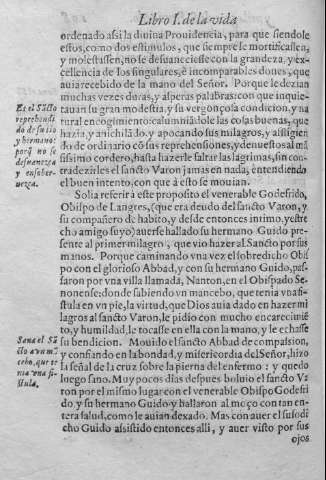 Libro I. de la vida
ordenado assi la diuina Prouidencia, para que siendole
estos, como dos estimulos, que siempre le mortificassen,
y molestassen, no se desuaneciesse con la grandeza, y ex-
cellencia de los singulares, è incomparables dones, que
auia recebido de la mano del Señor. Porque le dezian
muchas vezes duras, y asperas palabras: con que inquie-
tauan su gran modestia, y su vergonçosa condicion, y na
tural encogimiento: calumniãdole las cosas buenas, que
hazia, y anichilãdo, y apocando sus milagros, y afligien
do de ordinario cõ sus reprehensiones, y denuestos al mã
sissimo cordero, hasta hazerle saltar las lagrimas, sin con-
tradezirles el sancto Varon jamas en nada, entendiendo
el buen intento, con que à esto se mouian.
Solia referir à este proposito el venerable Godefrido,
Obispo de Langres, (que era deudo del sancto Varon, y
su compañero de habito, y desde entonces intimo, y estre
cho amigo suyo) auerse hallado su hermano Guido pre-
sente al primer milagro, que vio hazer al Sancto por sus
manos. Porque caminando vna vez el sobredicho Obis
po con el glorioso Abbad, y con su hermano Guido, pas-
saron por vna villa llamada, Nanton, en el Obispado Se-
nonense: donde sabiendo vn mancebo, que tenia vna fis-
tula en vn pie, la virtud, que Dios auia dado en hazer mi
lagros al sancto Varon, le pidio con mucho encarecimiẽ
to, y humildad, le tocasse en ella con la mano, y le echasse
su bendicion. Mouido el sancto Abbad de compassion,
y confiando en la bondad, y misericordia del Señor, hizo
la señal de la cruz sobre la pierna del enfermo: y quedo
luego sano. Muy pocos dias despues boluio el sancto Va
ron por el mismo lugar con el venerable Obispo Godefri
do, y su hermano Guido: y hallaron al moço con tan en-
tera salud, como le auian dexado. Mas con auer el susodi
cho Guido assistido entonces alli, y auer visto por sus
ojos
Es el Sãcto
reprehendi
do de su tio
y hermano:
porq̃ no se
desuanezca
y ensober-
uezca.
Sana el Sã
cto a vn mã
cebo, que te
nia vna fis
tula.